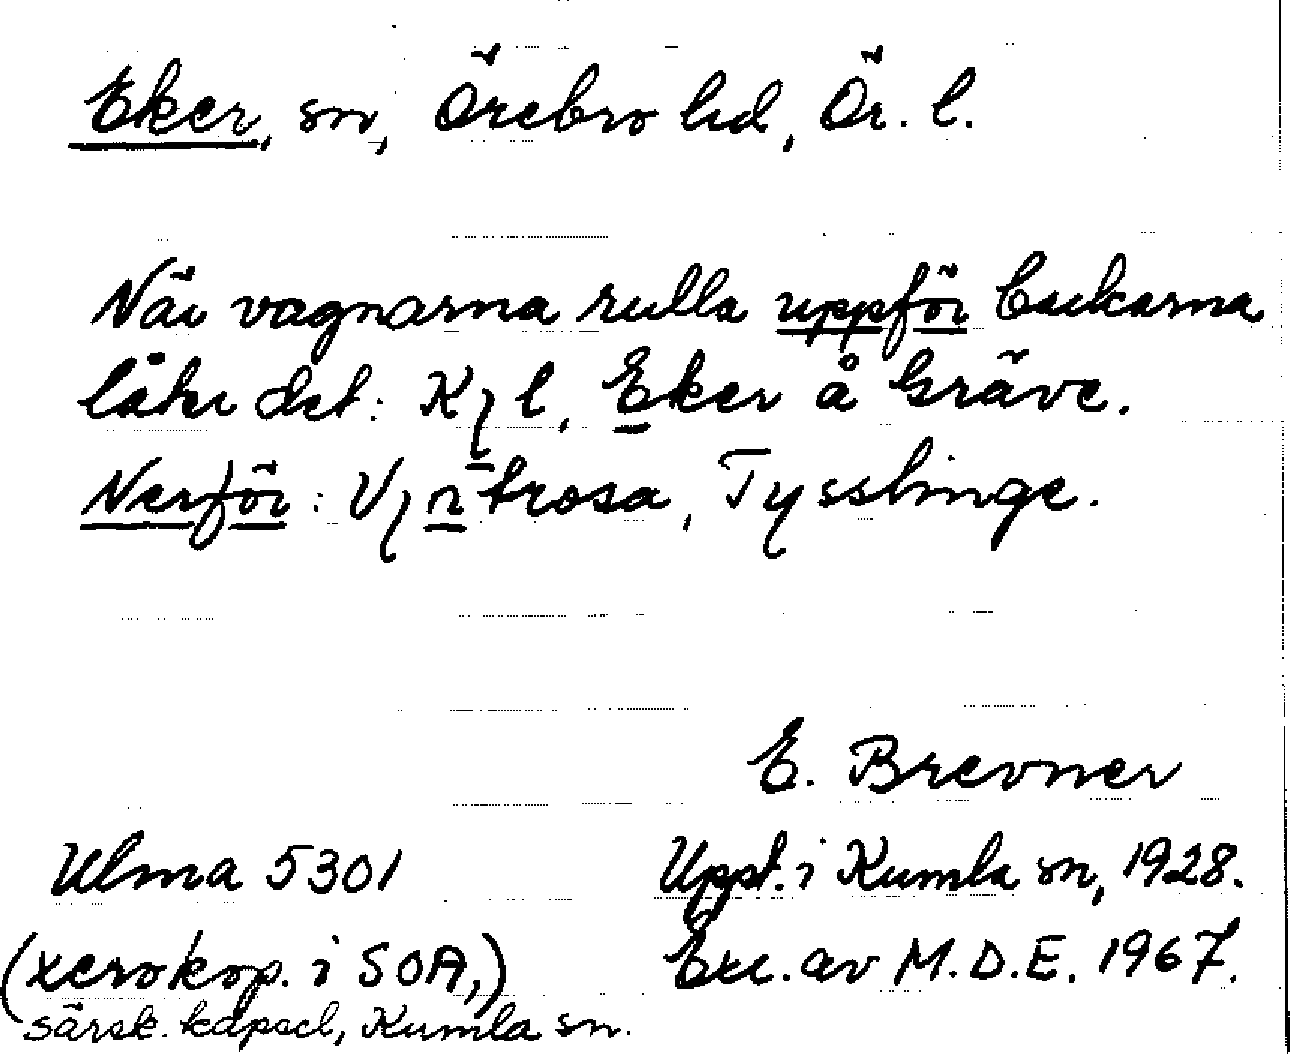 Eker, sn, Örebro hd, Ör. l.
När vagnarna rulla uppför backarna
låter det: K l, Eker å Gräve.
Nerför: V n trosa, Tysslinge.
E. Brevner
Ulma 5301
Uppt. i Kumla sn, 1928.
(xerokop. i SOA,)
Exc. av M.D.E. 1967.
särsk. kapsel, Kumla sn.